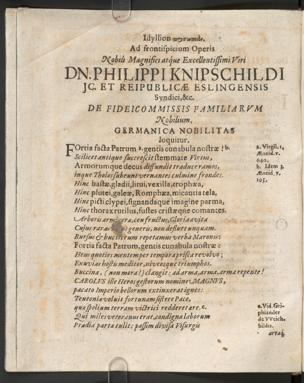 Idyllion
Ad frontispicium Operis
Nobilis Magnifici atque Excellentissimi Viri
DN. PHILIPPI KNIPSCHILDI
JC. ET REIPUBLICÆ ESLINGENSIS
Syndici, &c.
DE FIDEICOMMISSIS FAMILIARVM
Nobilium,
GERMANICA NOBILITAS
loquitur.
FOrtia facta Patrum a. gentis cunabula nostræ! b.
Scilicet antiquo succrescit stemmate Virtus,
Armorumque decus diffundit
inque Thalassi culmine frondes.
Hinc hastæ, gladii, litui, vexilla, trophæa,
Hinc plutei, galeæ, Romphæa, micantia tela,
Hinc picti clypei, signandaque imagine parma,
Hinc thorax rutilus, fustes cristæque comantes.
Arboris cen fructus, Gloria vita
Cujus generis, non defluet unquam.
Rursus & hic iterum repetemus verba Maronis
Fortia facta Patrum, gentis cunabula nostræ!
Hem quoties mentem per tempora prisca revolvo;
Exuvias hostis meditor, niveosque triumphos.
Buccina, (non mora!) clangit: ad arma, arma repente!
CAROLUS ille Heros gesterum nomine MAGNVS,
pacato Imperio bellorum extinxerat ignes:
Teutonia voluit fortunam sistere Pace,
qua spolium terram victrix reddere
Qui miles veteranus erat, condigna laborum
Prædia parta tulit: passim divisa Visurgis
a. Virgil. 1.
Æneid. v.
640.
b. Idem 3.
Æneid. v.
105.
c. Vid. Gryphiander
de VVeichbildis.